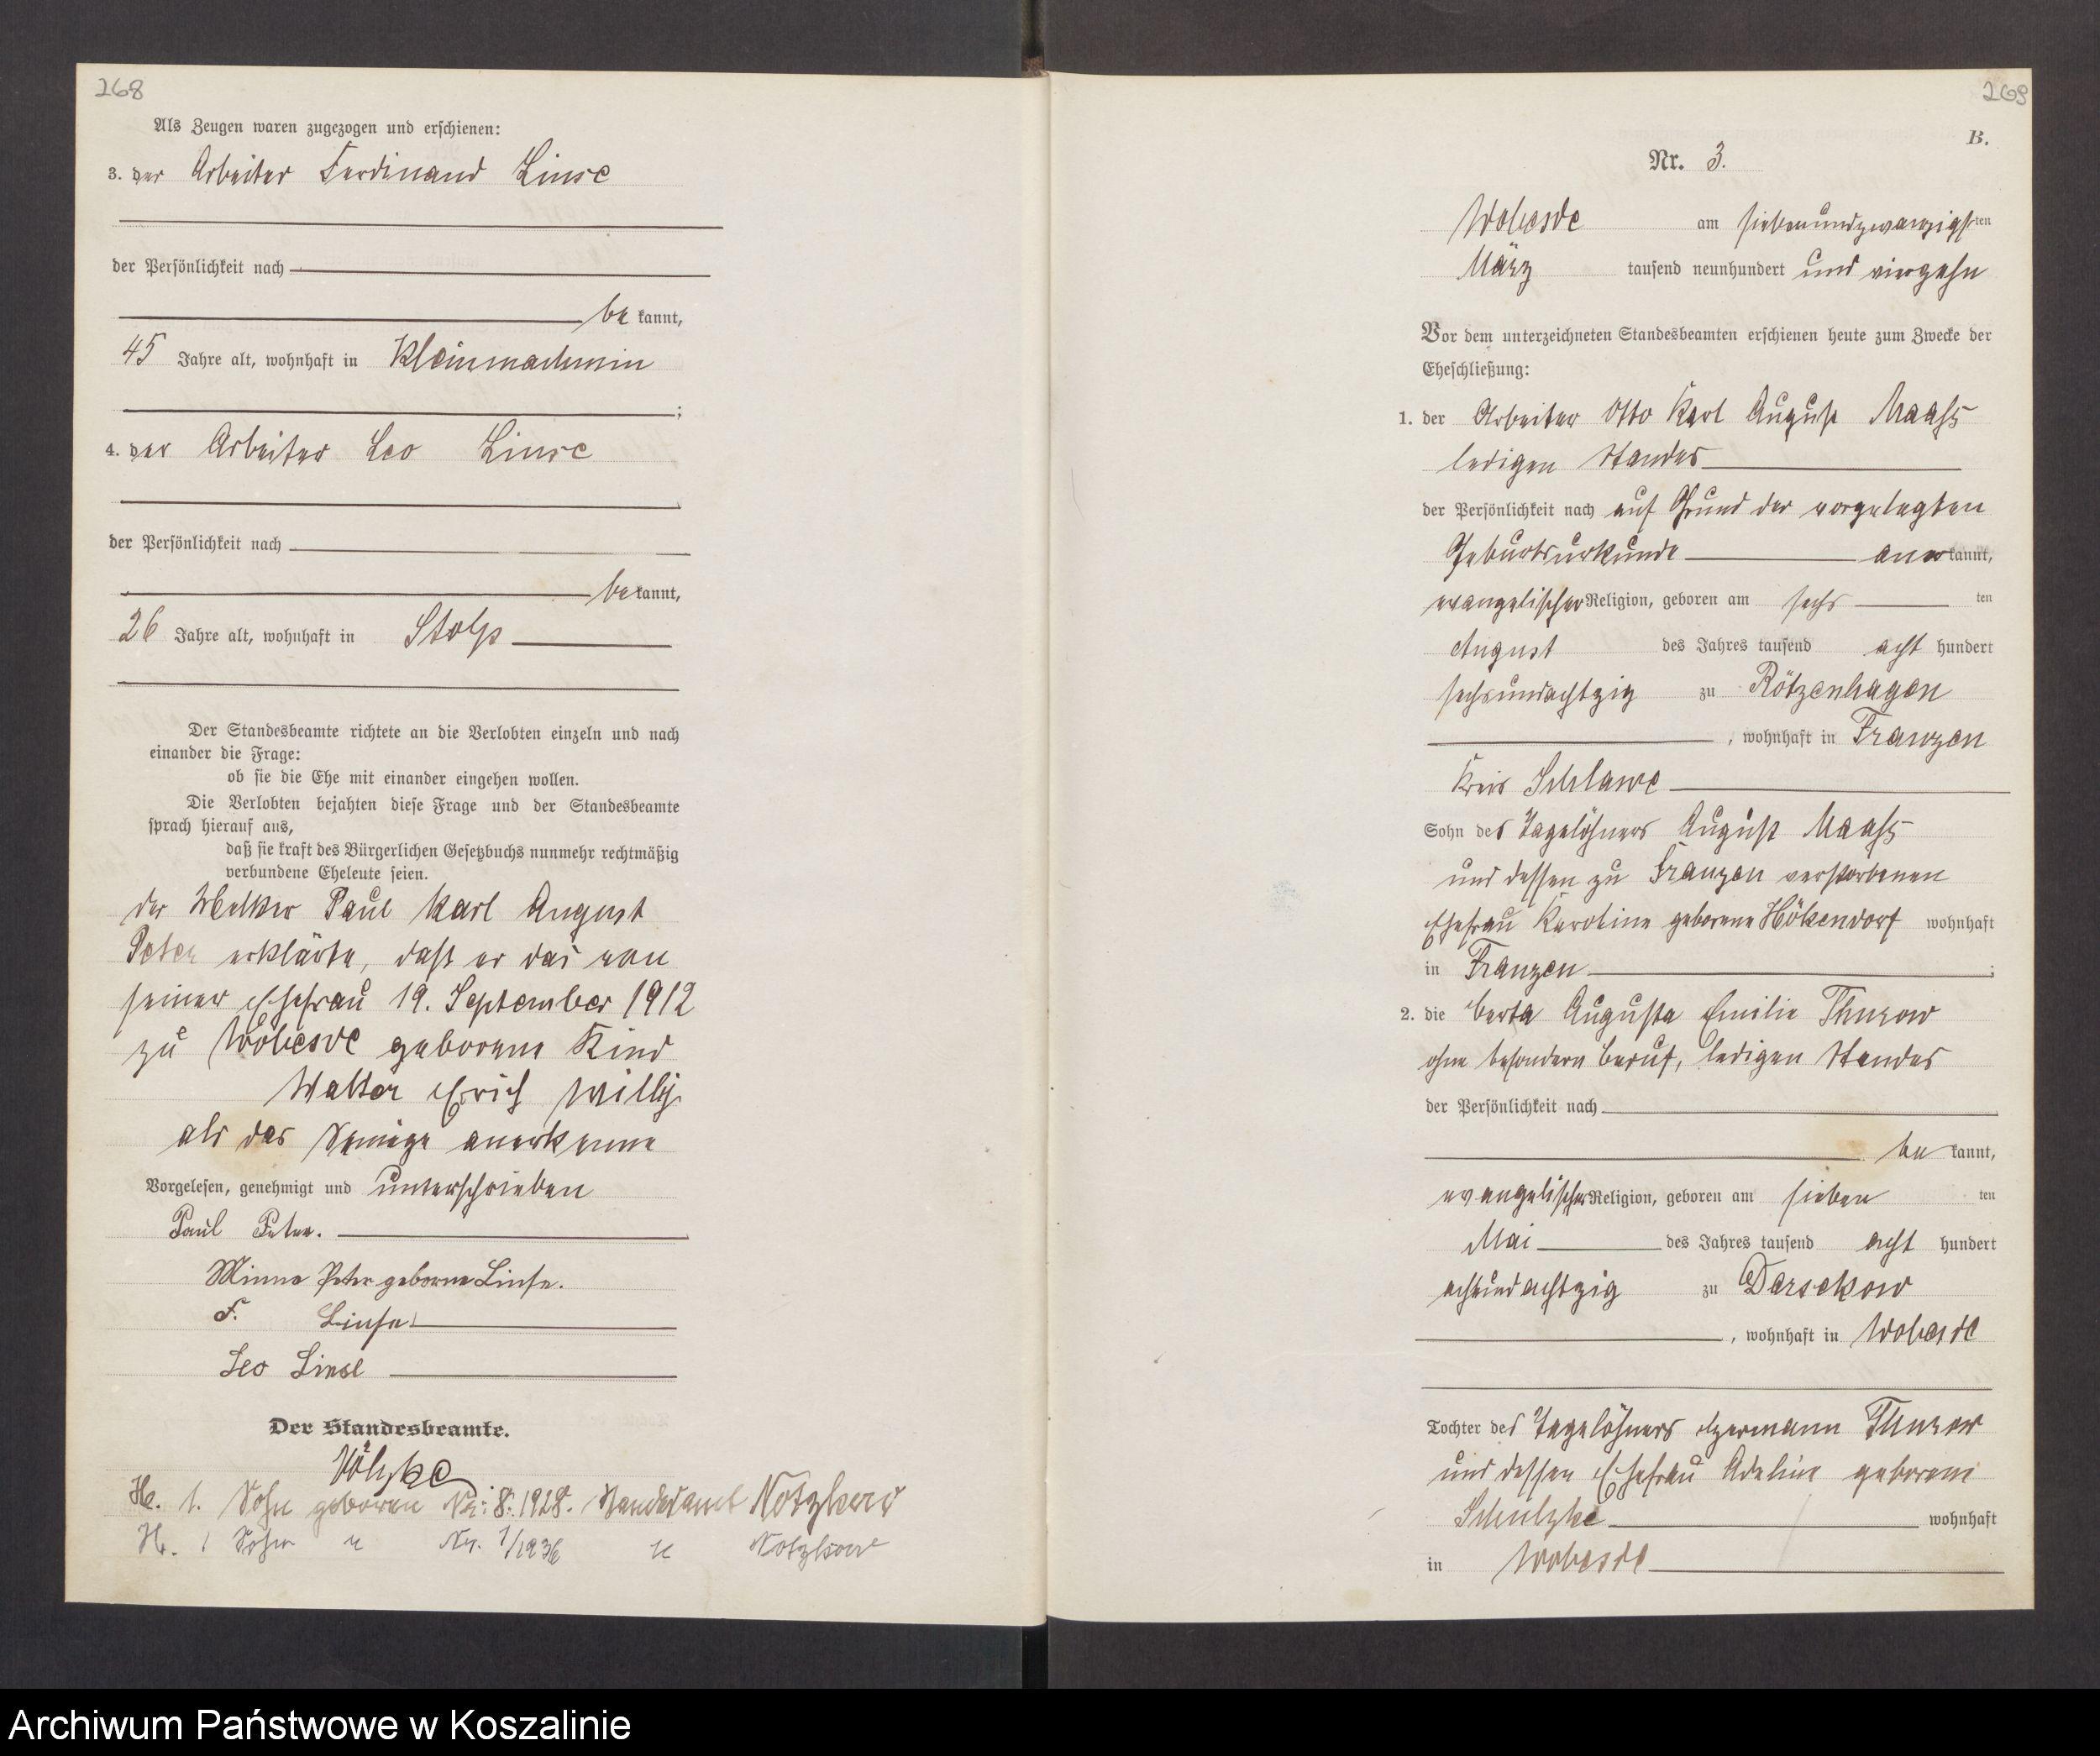 268
Als Zeugen waren zugezogen und erschienen:
3. der Arbeiter Ferdinand Linse
der Persönlichkeit nach
be kannt,
45 Jahre alt, wohnhaft in Kleinmachmin
;
4. der Arbeiter Leo Linse
der Persönlichkeit nach
be kannt,
26 Jahre alt, wohnhaft in Stolp
Der Standesbeamte richtete an die Verlobten einzeln und nach
einander die Frage:
ob sie die Ehe mit einander eingehen wollen.
Die Verlobten bejahten diese Frage und der Standesbeamte
sprach hierauf aus,
daß sie kraft des Bürgerlichen Gesetzbuchs nunmehr rechtmäßig
verbundene Eheleute seien.
der Melker Paul Karl August
Peter erklärte, daß er das von
seiner Ehefrau 19. September 1912
zu Wobesde geborene Kind
Walter Erich Willy
als das Seinige anerkenne
Vorgelesen, genehmigt und unterschrieben
Paul Peter.
Minna Peter geborne Linse.
F. Linse
Leo Linse
Der Standesbeamte.
He. 1. Sohn geboren Nr. 8. 1928. Standesamt Notzkow
H. 1 Sohn Nr. 1/1936 Notzkow
269
B.
Nr. 3.
Wobesde am siebenundzwanzigsten
März tausend neunhundert und vierzehn
Vor dem unterzeichneten Standesbeamten erschienen heute zum Zwecke der
Eheschließung:
1. der Arbeiter Otto Karl August Maaß
ledigen Standes
der Persönlichkeit nach auf Grund der vorgelegten
Geburtsurkunde anerkannt,
evangelischer Religion, geboren am sechs ten
August des Jahres tausend acht hundert
sechsundachtzig zu Rötzenhagen
, wohnhaft in Franzen
Kreis Schlawe
Sohn des Tagelöhners August Maaß
und dessen zu Franzen verstorbenen
Ehefrau Karoline geborene Hökendorf wohnhaft
in Franzen ;
2. die Berta Augusta Emilie Thurow
ohne besondern Beruf, ledigen Standes
der Persönlichkeit nach
be kannt,
evangelischer Religion, geboren am sieben ten
Mai des Jahres tausend acht hundert
achtundachtzig zu Darsekow
, wohnhaft in Wobesde
Tochter des Tagelöhners Hermann Thurow
und dessen Ehefrau Adeline geborene
Schulzke wohnhaft
in Wobesde
Archiwum Państwowe w Koszalinie